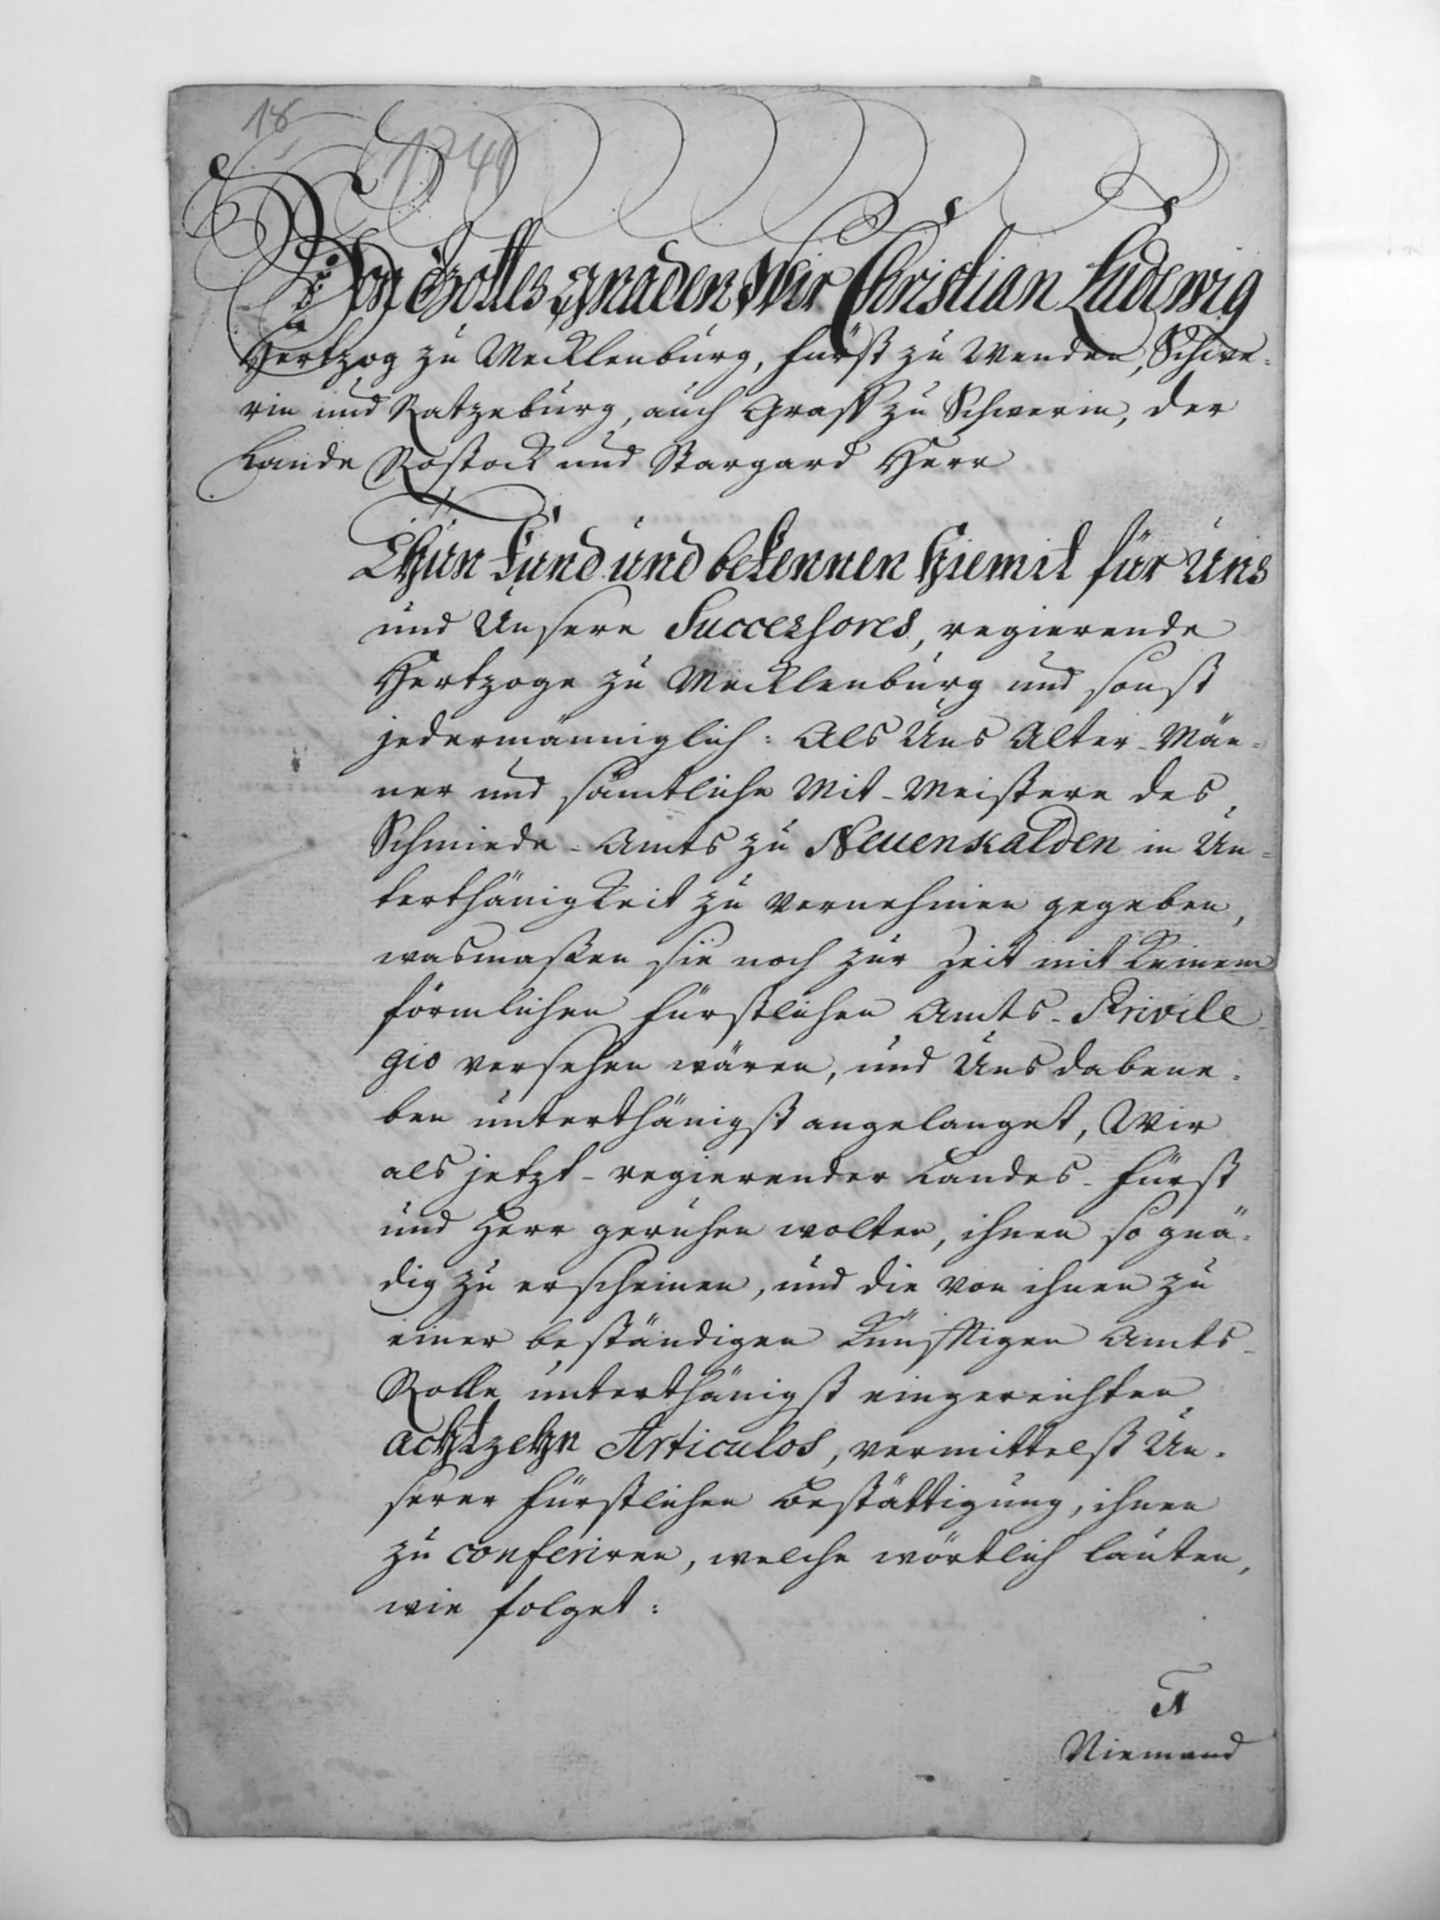 18
1749
Von Gottes Gnaden Wir Christian Ludewig
Hertzog zu Mecklenburg, Fürst zu Wenden, Schwe-
rin und Ratzeburg, auch Graff zu Schwerin, der
Lande Rostock und Stargard Herr
Thun Kund und bekennen hiemit für Uns
und Unsere Successores, regierende
Hertzoge zu Mecklenburg und sonst
jedermänniglich: Als Uns Alter-Män-
ner und sämtliche Mit-Meistere des
Schmiede-Amts zu Neuenkalden in Un-
terthänigkeit zu vernehmen gegeben,
wasmaßen sie noch zur Zeit mit keinem
förmlichen Fürstlichen Amts-Privile-
gio versehen wären, und Uns dabene-
ben unterthänigst angelanget, Wir
als jetzt-regierender Landes-Fürst
und Herr geruhen wolten, ihnen so gnä-
dig zu erscheinen, und die von ihnen zu
einer beständigen künfftigen Amts-
Rolle unterthänigst eingereichten
achtzehn Articulos, vermittelst Un-
serer Fürstlichen Bestättigung, ihnen
zu conferiren, welche wörtlich lauten,
wie folget:
Niemand